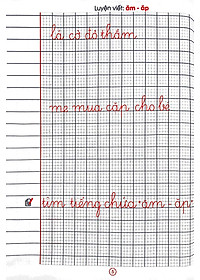 Luyện viết: ăm - ăp
lá cờ đỏ thắm
mẹ mua cặn cho bé
tìm tiếng chức: ăm - ăp
5